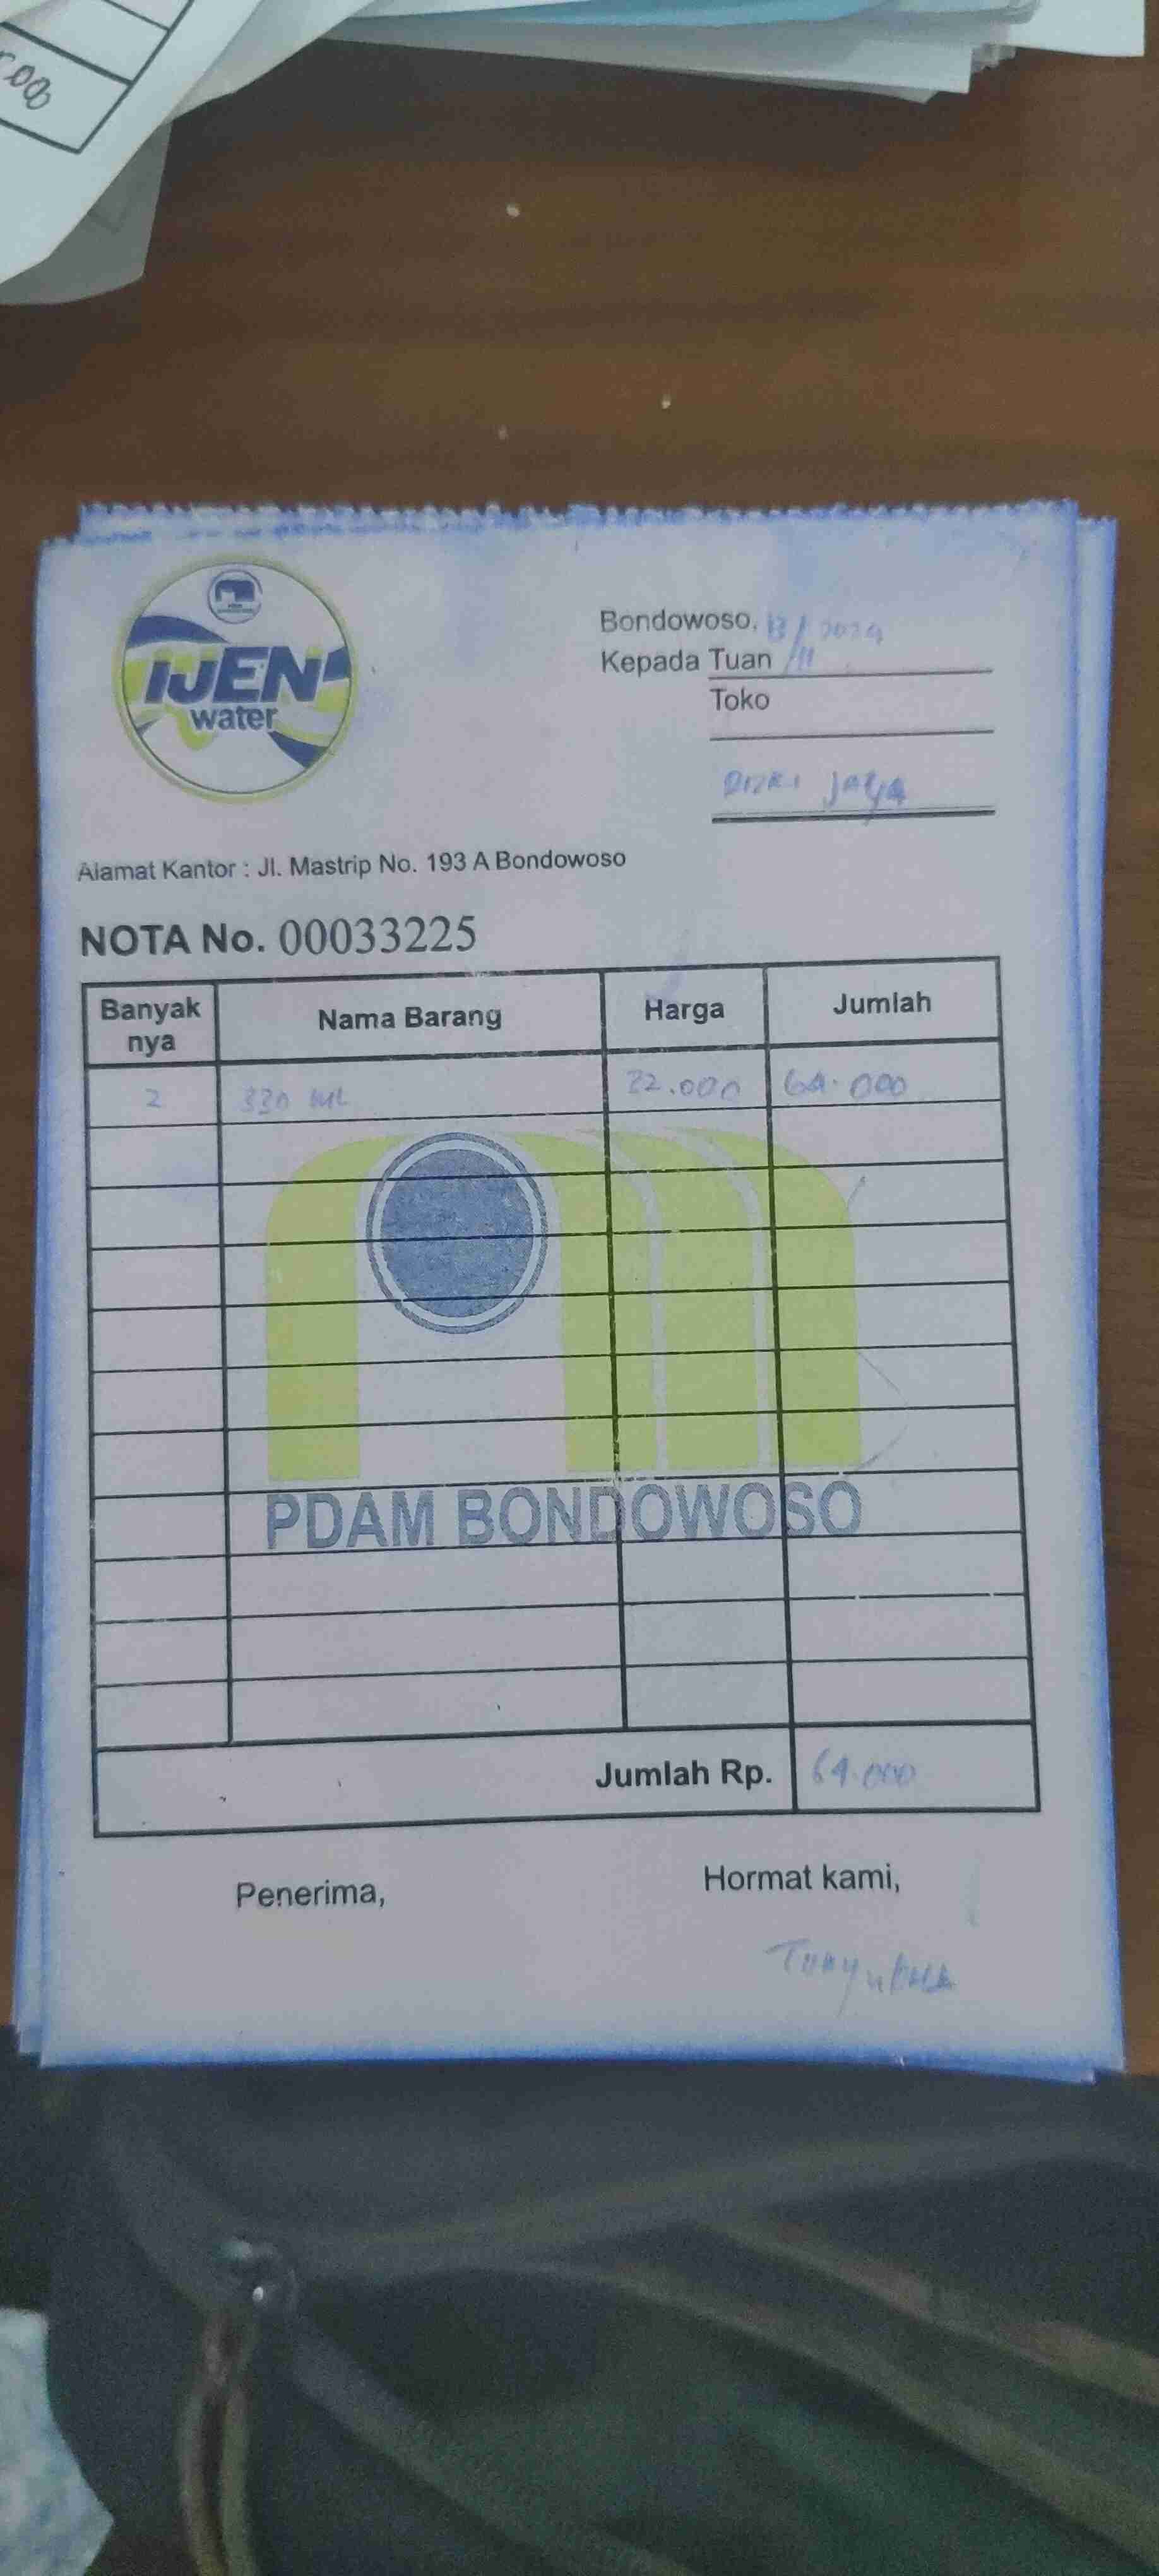 500
IJEN
water
Bondowoso, 13/11 2024
Kepada Tuan
Toko
Rizki Jaya
Alamat Kantor : Jl. Mastrip No. 193 A Bondowoso
NOTA No. 00033225
Banyak nya Nama Barang Harga Jumlah
2 330 ML 32.000 64.000
PDAM BONDOWOSO
Jumlah Rp. 64.000
Penerima, Hormat kami,